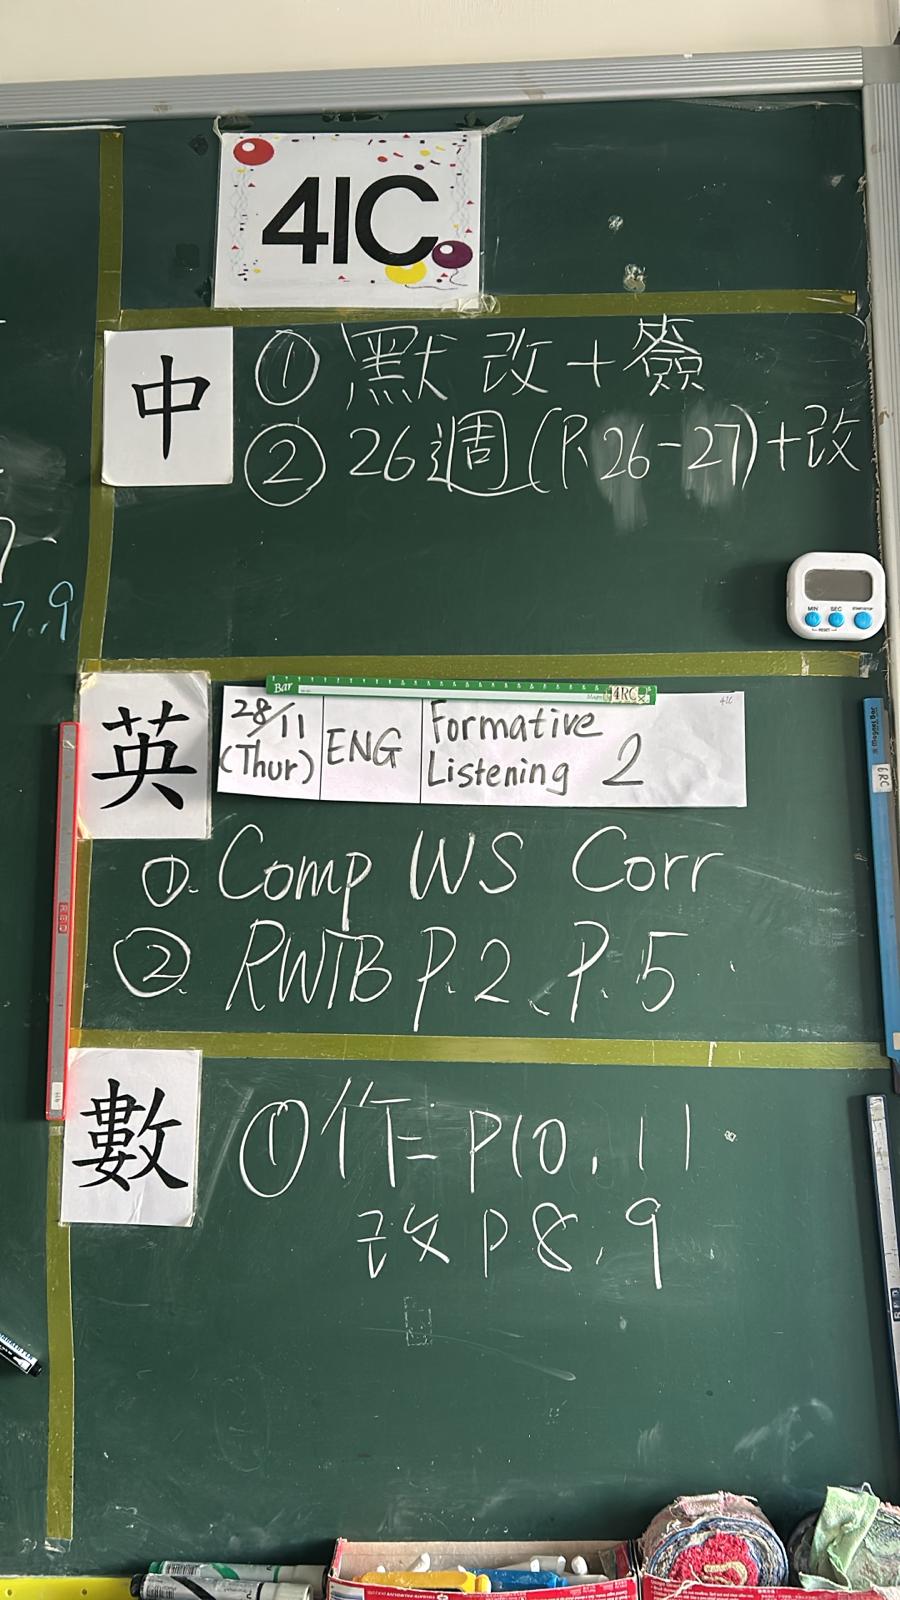 4IC
中
① 默 改 + 簽
② 26週(P.26-27)+改
7.9
英
28/11 (Thur) ENG Formative Listening 2
①. Comp WS Corr
② RWTB P.2、P.5
數
① 作= P10, 11
改 P8, 9
MIN SEC START/STOP
RESET
Bar
4RC
4IC
Magnet Bar
6RC